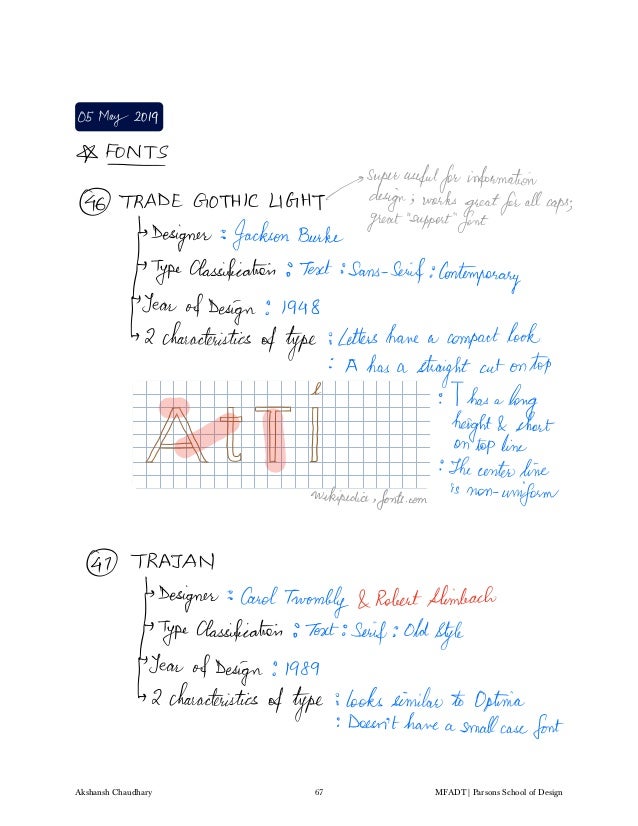 05 May 2019
☆ FONTS
46 TRADE GOTHIC LIGHT
Super useful for information
design; works great for all caps;
great "support" font
Designer : Jackson Burke
Type Classification : Text : Sans-Serif : Contemporary
Year of Design : 1948
2 characteristics of type : Letters have a compact look
: A has a straight cut on top
: T has a long
height & short
on top line
: The center line
is non-uniform
l
A t T l
Wikipedia, fonts.com
47 TRAJAN
Designer : Carol Twombly & Robert Slimbach
Type Classification : Text : Serif : Old Style
Year of Design : 1989
2 characteristics of type : looks similar to Optima
: Doesn't have a small case font
Akshansh Chaudhary 67 MFADT | Parsons School of Design